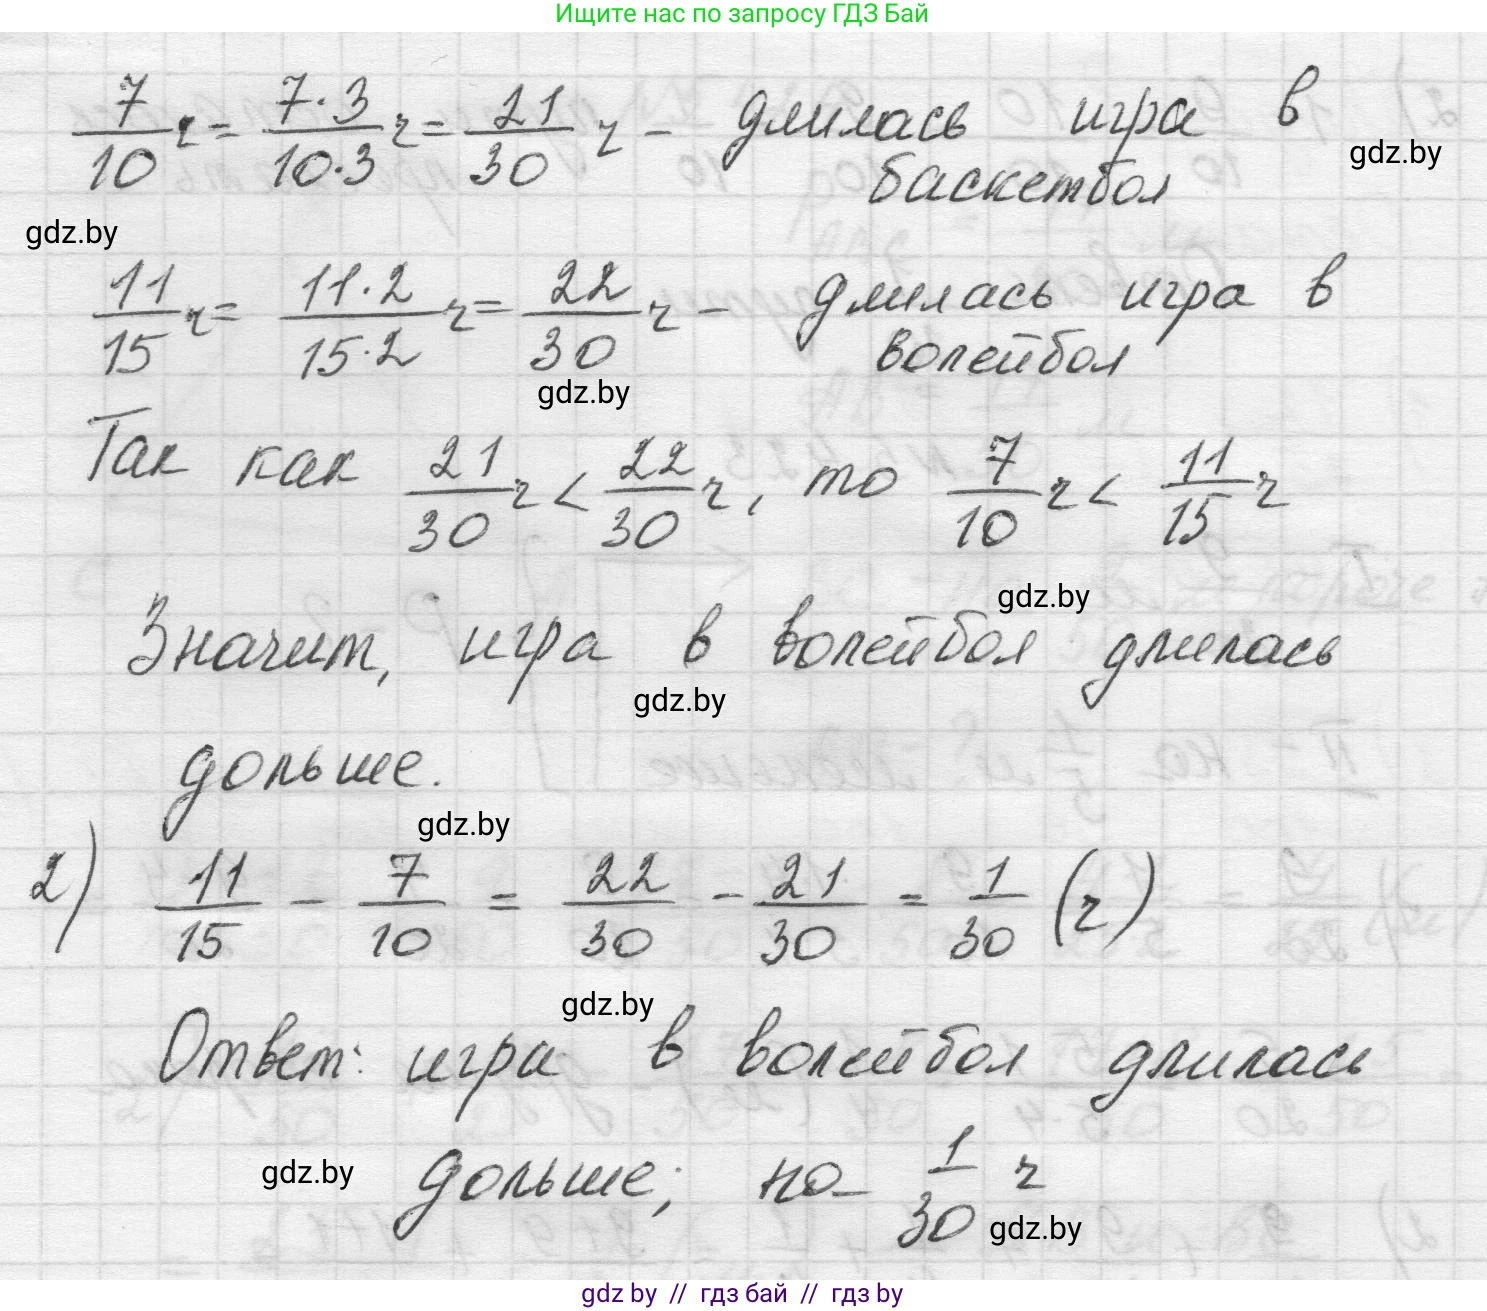 Ищите нас по запросу ГДЗ Бай
7/10 ч = 7·3/10·3 ч = 21/30 ч - длилась игра в
gdz.by
баскетбол
gdz.by
11/15 ч = 11·2/15·2 ч = 22/30 ч - длилась игра в
волейбол
gdz.by
Так как 21/30 ч < 22/30 ч, то 7/10 ч < 11/15 ч
gdz.by
Значит, игра в волейбол длилась
gdz.by
дольше.
gdz.by
2) 11/15 - 7/10 = 22/30 - 21/30 = 1/30 (ч)
gdz.by
Ответ: игра в волейбол длилась
gdz.by дольше; на 1/30 ч
gdz.by
gdz by // гдз бай // гдз by